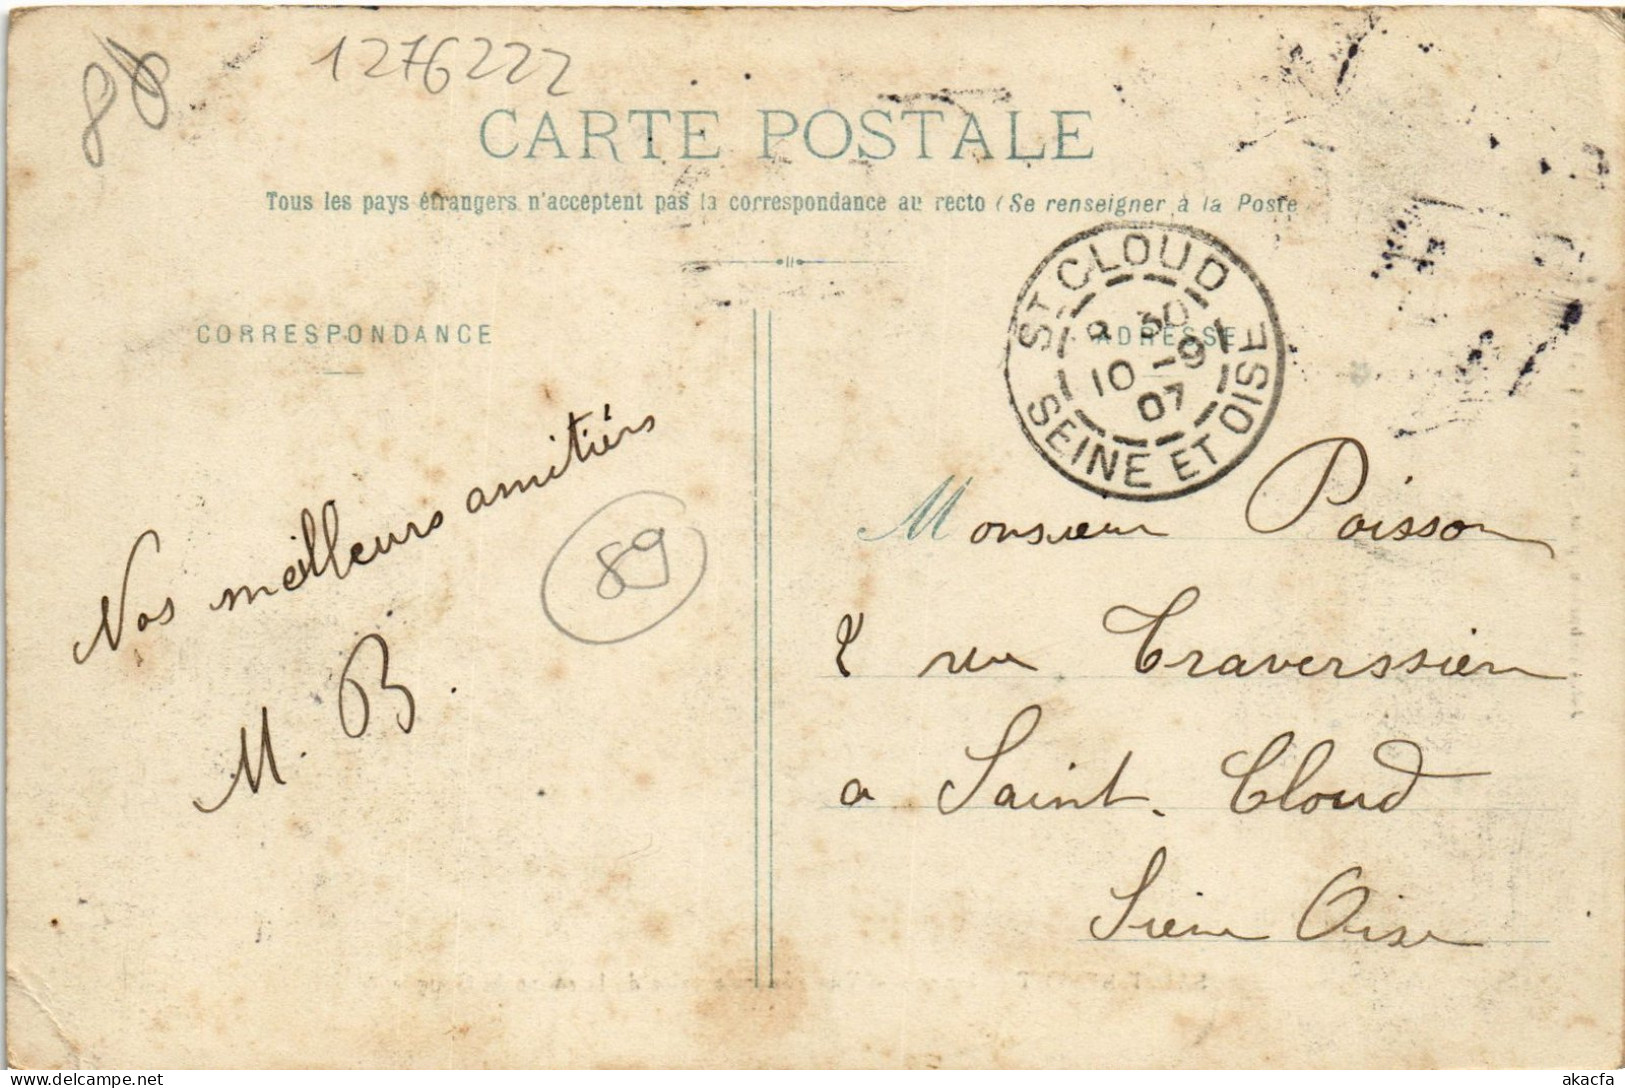 86
1276222
CARTE POSTALE
Tous les pays étrangers n'acceptent pas la correspondance au recto (Se renseigner à la Poste
CORRESPONDANCE
ADRESSE
ST CLOUD
9 30
10 -9
07
SEINE ET OISE
Nos meilleurs amitiés
M. B.
89
Monsieur Poisson
2 rue Traverssière
a Saint. Cloud
Seine Oise
akacfa